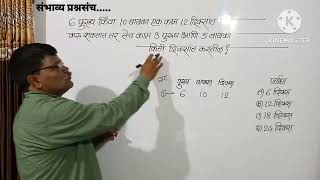 संभाव्य प्रश्नसंच.....
6 पुरुष किंवा 10 बायका एक काम 12 दिवसात
करू शकतात तर तेच काम 3 पुरुष आणि 5 बायका
किती दिवसात करतील ?
KINEMASTER
पुरुष बायका दिवस
6 10 12
पर्याय
A) 6 दिवस
B) 12 दिवस
C) 18 दिवस
D) 24 दिवस